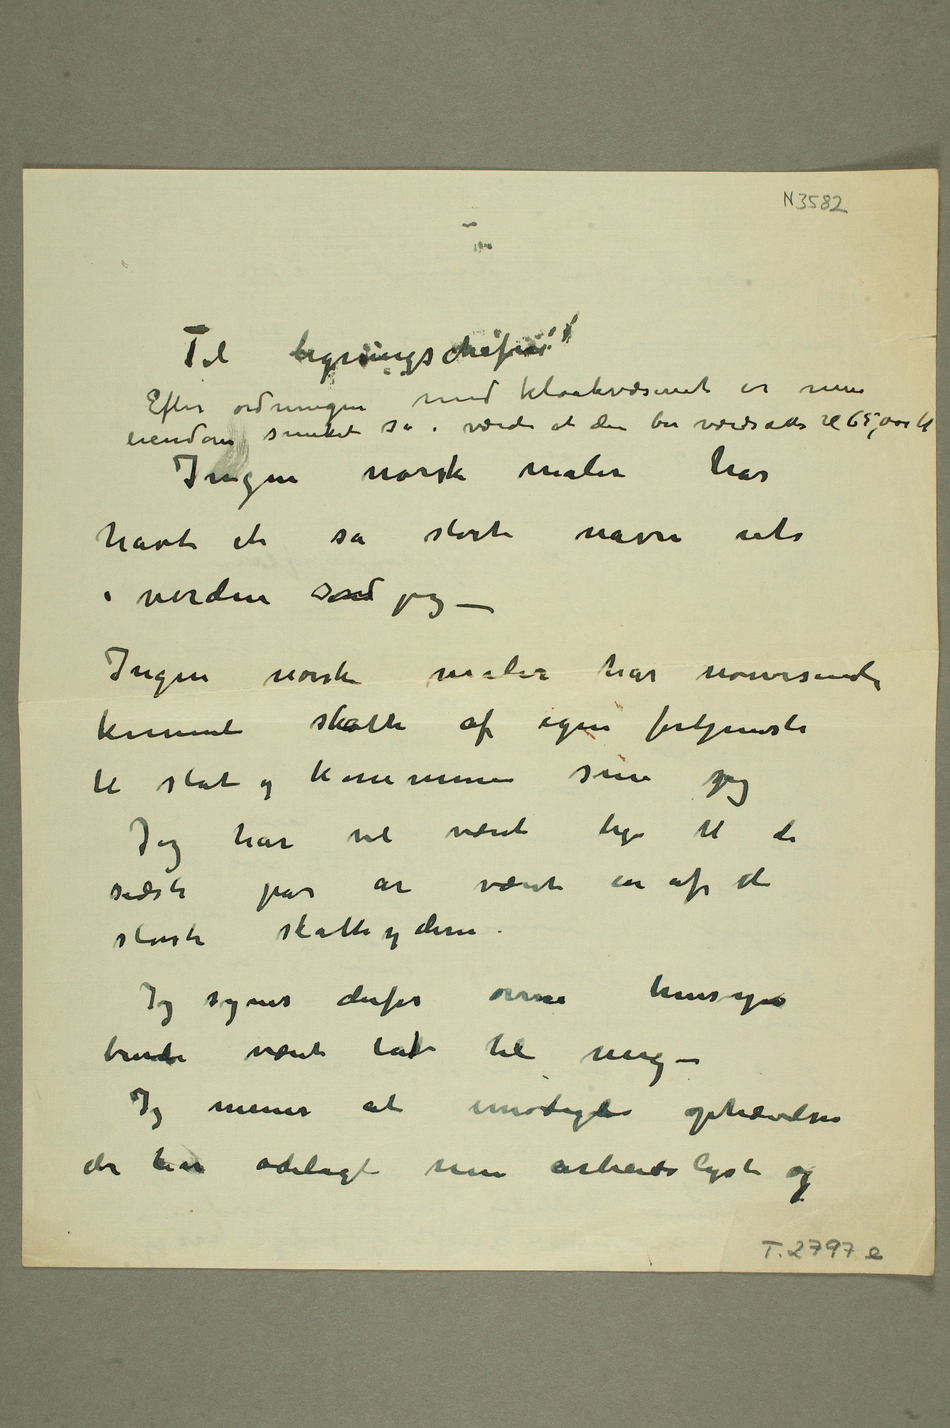 N 3582
Til ligningschefen!
Efter ordningen med kloakvæsenet er min
eiendom sunket så i værdi at den bør værdsættes til 65,000 kr
Ingen norsk maler har
havt et så stort navn ute
i verden som jeg –
Ingen norsk maler har
kunnet skatte af egen fortjeneste
til stat og kommune som jeg
Jeg har vel været lige til de
sidste par år været en af de
største skatteydere.
Jeg synes derfor hensyn
burde været tat til mig –
Jeg mener at ophævelse
der har ødelagt min arbeidslyst og
T. 2797 e